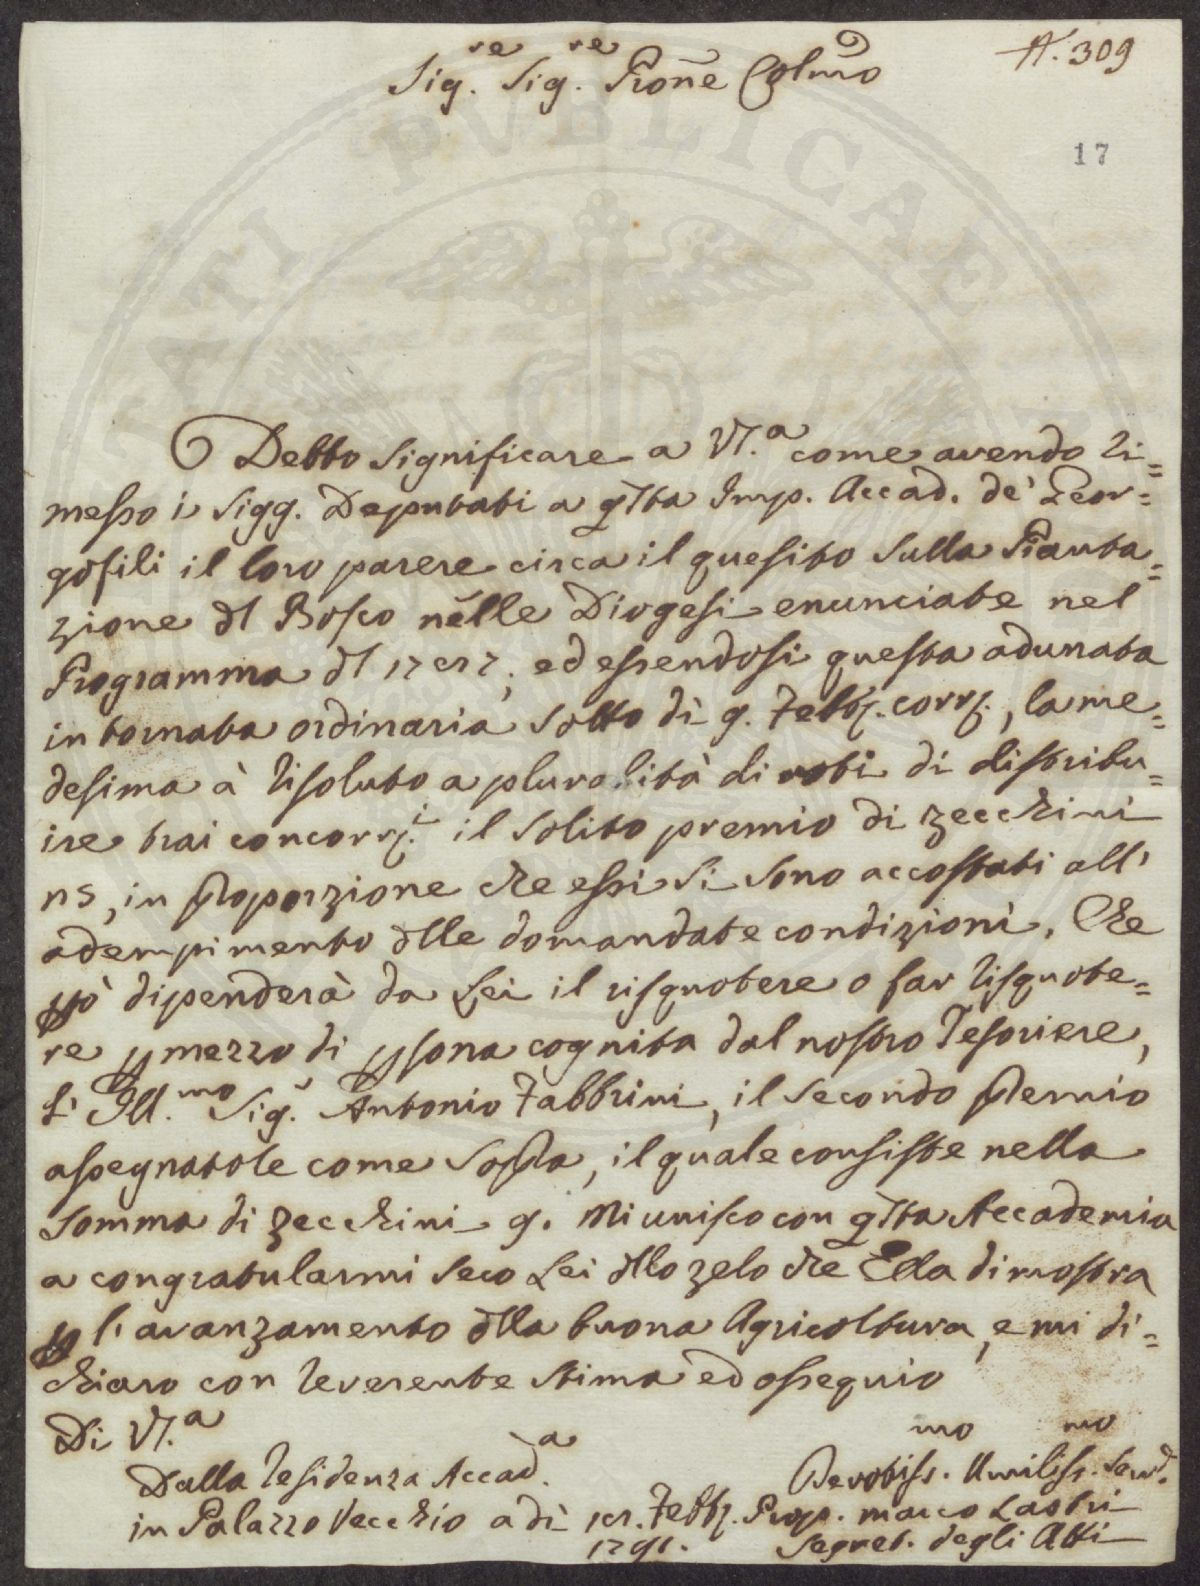 A. 309
Sig.re Sig.re Prone Colmo
17
Debbo significare a VS.a come avendo ri=
messo i Sigg. Deputati a qsta Imp. Accad. de' Geor=
gofili il loro parere circa il quesito sulla Pianta=
zione dl Bosco nelle Diogesi enunciate nel
Programma dl 1787, ed essendosi questa adunata
in tornata ordinaria sotto dì 9. Febb. corr., la me=
desima à risoluto a pluralità di voti di distribu=
ire trai concorr.i il solito premio di zecchini
25, in proporzione che essi si sono accostati all'
adempimento dlle domandate condizioni. Che
pò dipenderà da Lei il risquotere o far risquote=
re p mezzo di psona cognita dal nostro Tesoriere,
l' Ill.mo Sig. Antonio Fabbrini, il secondo premio
assegnatole come sopra, il quale consiste nella
somma di zecchini 9. Mi unisco con qsta Accademia
a congratularmi seco Lei dllo zelo che Ella dimostra
p l'avanzamento dlla buona Agricoltura, e mi di=
chiaro con reverente stima ed ossequio
Di VS.a
Dalla Residenza Accad.a
in Palazzo Vecchio a dì 18. Febb.
1791.
Devotiss.mo Umiliss.mo Serv.
Prop. Marco Lastri
Segret. degli Atti
PVBLICAE